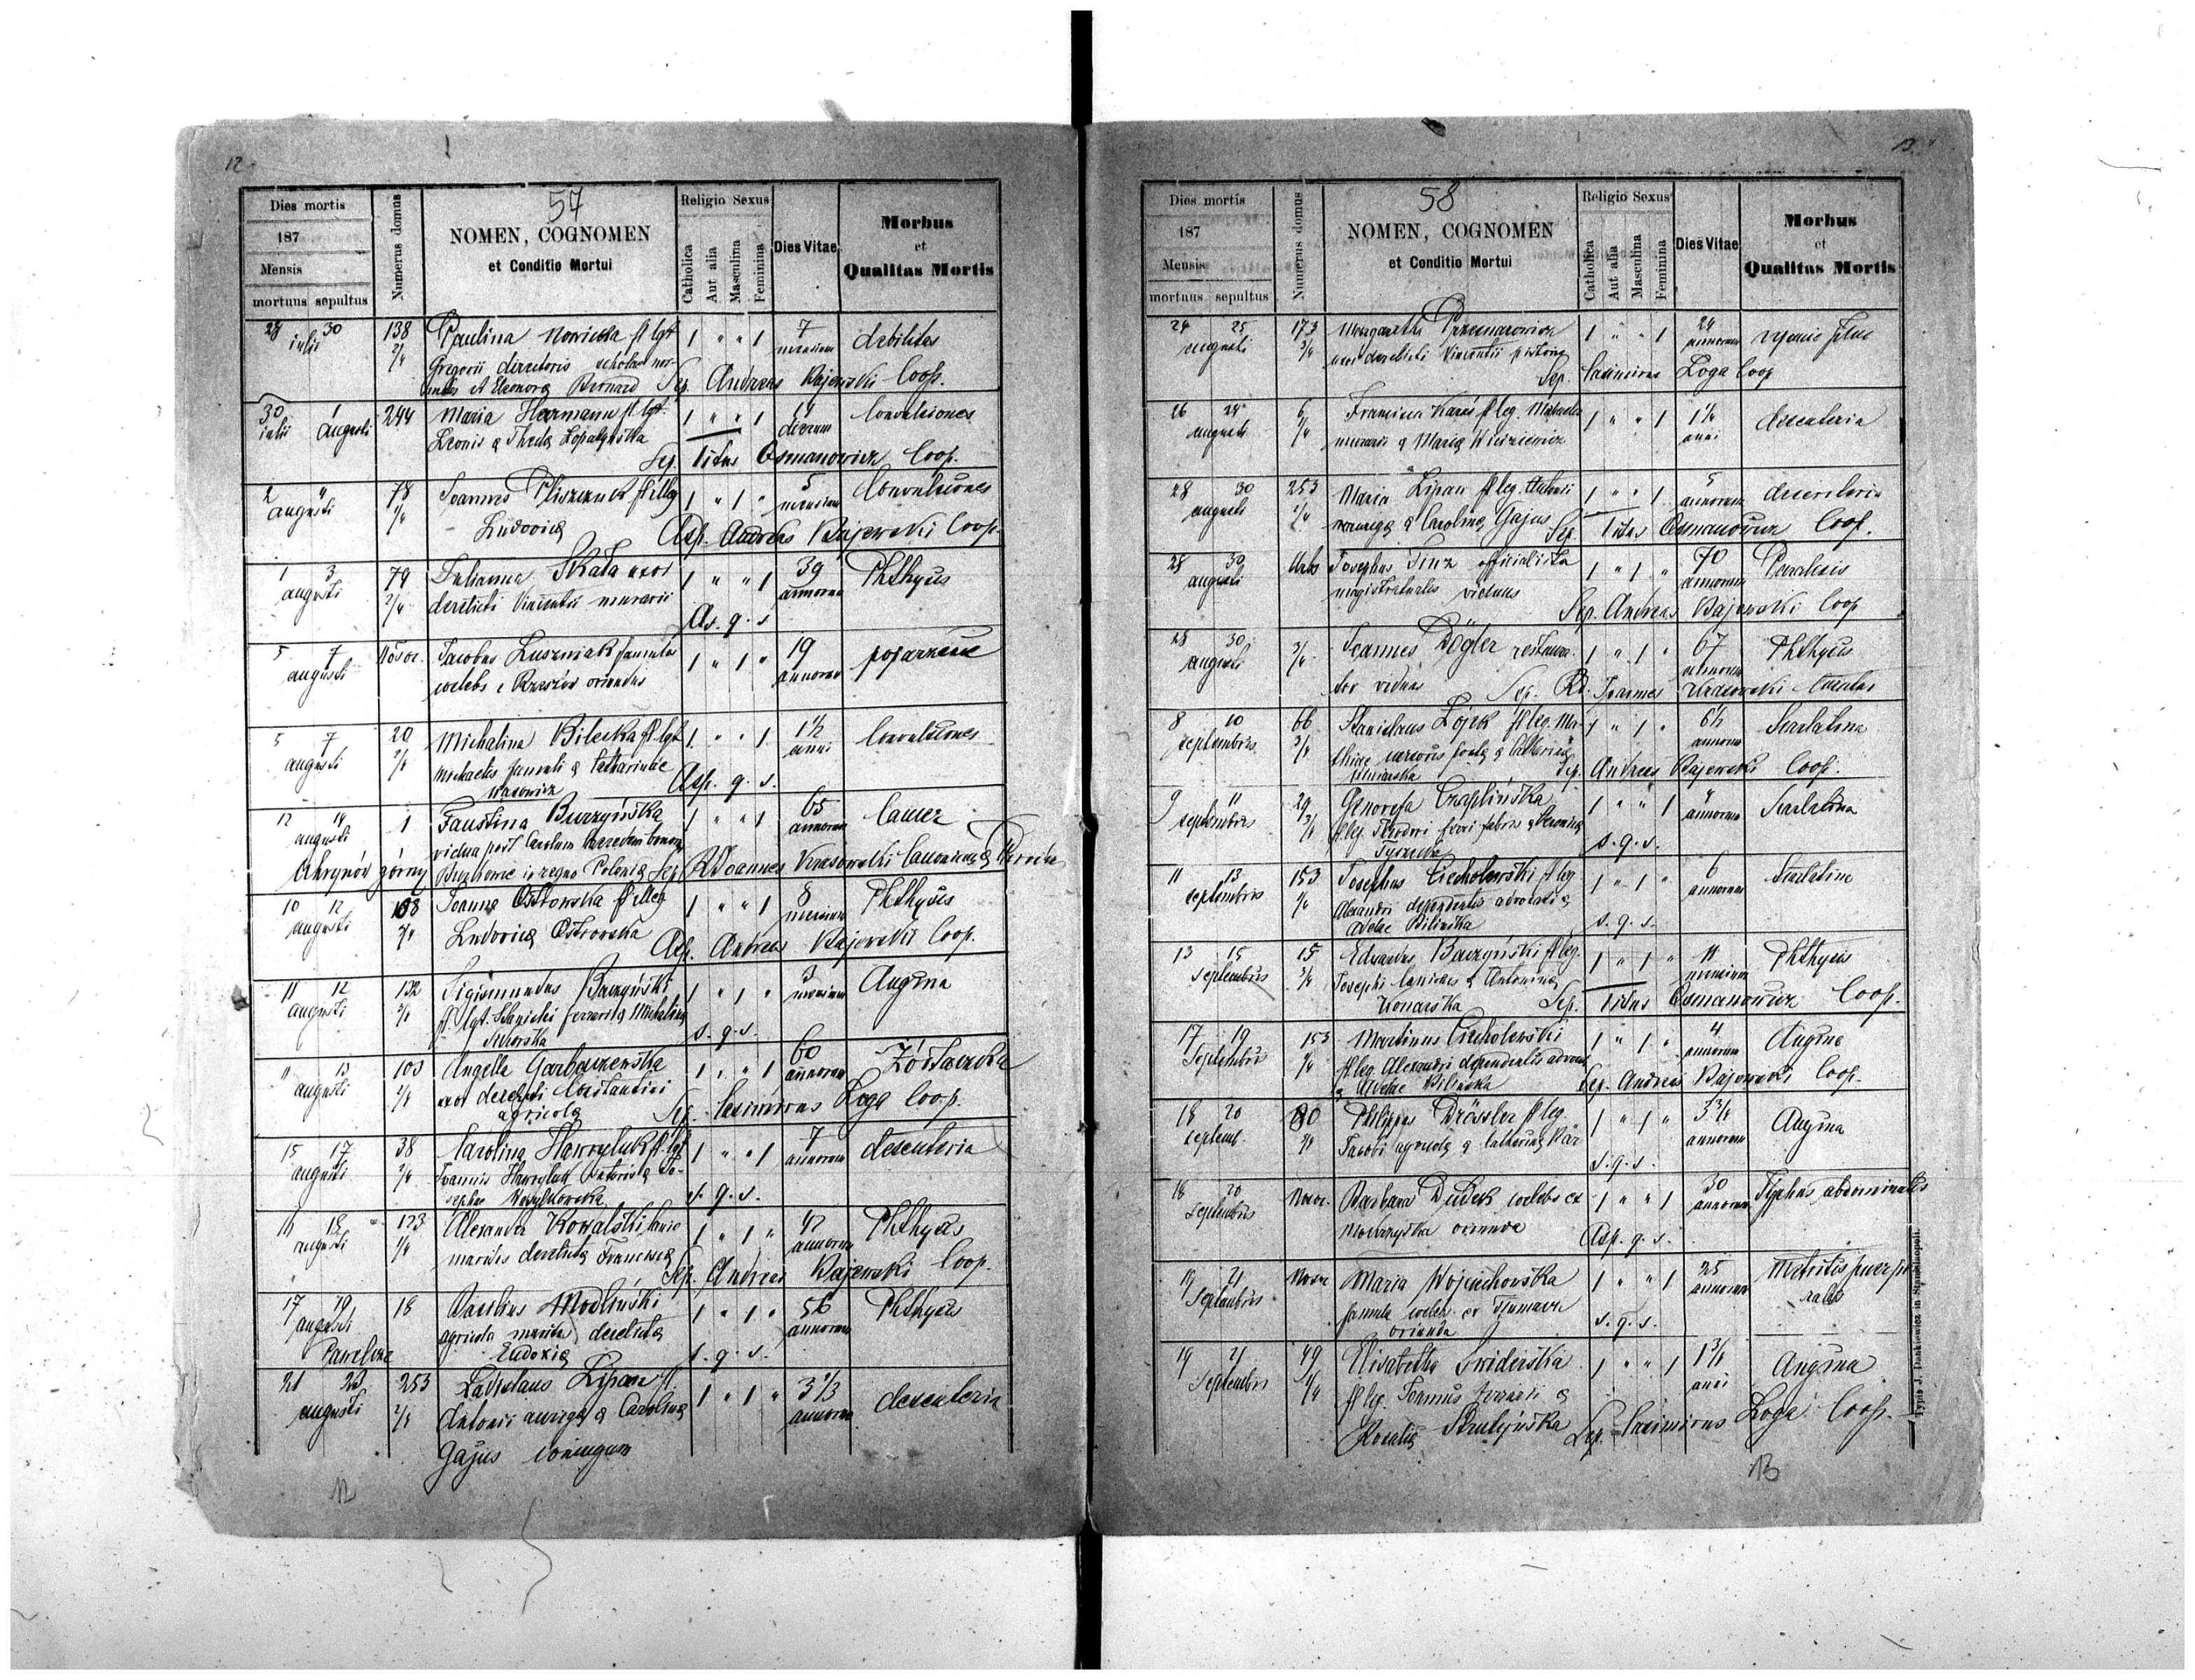 12
57
Dies mortis
187
Mensis
mortuus sepultus
Numerus domus
NOMEN, COGNOMEN
et Conditio Mortui
Religio Sexus
Catholica
Aut alia
Masculina
Feminina
Dies Vitae
Morbus
et
Qualitas Mortis
28 30 138 Paulina Nowicka fl lgt 1 " " 1 7 debilitas
iulii 2/4 mensium
Gregorii directoris scholae nor-
malis et Eleonora Bernard Sep. Andreas Bajewski Coop.
30 1 244 Maria Herrmann fl. lgt. 1 " " 1 14 Convulsiones
iulii augusti Leonis & Thecla Lopatyńska dierum
Sep. Titus Osmanowicz Coop.
2 4 78 Joannes Pliszczuk fl illeg 1 " 1 " 5 Convulsiones
augusti 2/4 mensium
Ludovica Asp. Andreas Bajewski Coop.
1 3 79 Julianna Skała uxor 1 " " 1 39 Phthysis
augusti 2/4 derelicti Vincentii murarii annorum
As. q. s
5 7 Nosoc. Jacobus Luszniak famulus 1 " 1 " 19 poparzenie
augusti coelebs e Rzeszów oriundus annorum
5 7 20 Michalina Bilecka fl lgt 1 " " 1 1 1/2 Convulsiones
augusti 2/4 Michaelis famuli & Catharinae anni
Wasowicz Asp. q. s.
12 14 1 Faustina Burzyńska 1 " " 1 65 Cancer
augusti vidua post annorum
Uhrynów górny Joannes Krasowski Canonicus &
10 12 108 Joanna Ostrowska fl illeg 1 " " 1 8 Phthysis
augusti 2/4 mensium
Ludovica Ostrowska Asp. Andreas Bajewski Coop.
11 12 132 Sigismundus Burzyński 1 " 1 " 3 Angina
augusti 2/4 fl. lgt. & Michalina mensium
Sikorska s. q. s.
11 13 103 Angella Garbaczewska 1 " " 1 60 Żółtaczka
augusti 2/4 uxor derelicti Constantini annorum
agricola Sep. Casimirus Loga Coop.
15 17 38 Karolina Hawryluk fl. lgt 1 " " 1 7 desenteria
augusti 2/4 Joannis Hawryluk & Jo- annorum
sepha Wasylkowska s. q. s.
16 18 123 Alexander Kowalski 1 " 1 " 42 Phthysis
augusti 1/4 maritus derelicta Francisca annorum
Sep. Andreas Bajewski Coop.
17 19 18 Basilius Modliński 1 " 1 " 56 Phthysis
augusti agricola maritus derelicta annorum
Pawelcze Eudoxia s. q. s.
21 23 253 Ladislaus Lipan fl 1 " 1 " 3 1/3 desenteria
augusti 2/4 Antonii auriga & Carolina annorum
Gajus coniugum
12
13
58
Dies mortis
187
Mensis
mortuus sepultus
Numerus domus
NOMEN, COGNOMEN
et Conditio Mortui
Religio Sexus
Catholica
Aut alia
Masculina
Feminina
Dies Vitae
Morbus
et
Qualitas Mortis
24 25 173 Margaretha 1 " " 1 24
augusti 3/4 uxor derelicti Vincentii pistoris annorum
Sep. Casimirus Loga Coop
26 6 Francisca fl leg. Michaelis 1 " " 1 1 1/4 desenteria
augusti 2/4 murarii & Maria anni
28 30 253 Maria Lipan fl leg. Antonii 1 " " 1 5 desenteria
augusti 2/4 & Carolina Gajus annorum
Sep. Titus Osmanowicz Coop.
28 30 Urbs Josephus officialista 1 " 1 " 70 Paralysis
augusti magistratualis viduus annorum
Sep. Andreas Bajewski Coop
28 30 3/4 Joannes Dögler restaura- 1 " 1 " 67 Phthysis
augusti tor viduus annorum
Sep. Rd. Joannes Krasowski
8 10 66 Stanislaus Łojek fl leg. Ma- 1 " 1 " 6 1/2 Scarlatina
septembris 3/4 thiae & Catharina annorum
Sep. Andreas Bajewski Coop.
9 11 29 Genovefa Czaplińska 1 " " 1 4 Scarlatina
septembris 3/4 fl leg. Theodori ferri fabri & Veronica annorum
s. q. s.
11 13 153 Josephus Ciecholewski fl leg 1 " 1 " 6 Scarlatina
septembris 1/4 Alexandri dependentis advocati & annorum
Adelae Bilińska s. q. s.
13 15 15 Eduardus Burzyński fl leg. 1 " 1 " 11 Phthysis
septembris 3/4 Josephi lanionis & Antonina mensium
Konarska Sep. Titus Osmanowicz Coop.
17 19 153 Martinus Ciecholewski 1 " 1 " 4 Angina
Septembris 1/4 fl leg. Alexandri dependentis advocati annorum
& Adelae Bilinska Sep. Andreas Bajewski Coop.
18 20 80 Philippus Drössler fl leg. 1 " 1 " 5 3/4 Angina
septemb. 2/4 Jacobi agricola & Catharina Bär annorum
s. q. s.
18 20 Nosoc. Barbara Dudek coelebs ex 1 " " 1 30 Typhus abdominalis
Septembris oriunda annorum
Asp. q. s.
19 21 Nosoc Maria Wojciechowska 1 " " 1 25 Metritis puerpe-
Septembris famula coelebs ex Tłumacz annorum ralis
oriunda s. q. s.
19 21 49 Elisabetha Sviderska 1 " " 1 1 3/4 Angina
Septembris 1/4 fl leg. Joannis & anni
Rosalia Sep. Casimirus Loga Coop.
13
Typis J. Dankiewicz in Stanislaopoli.